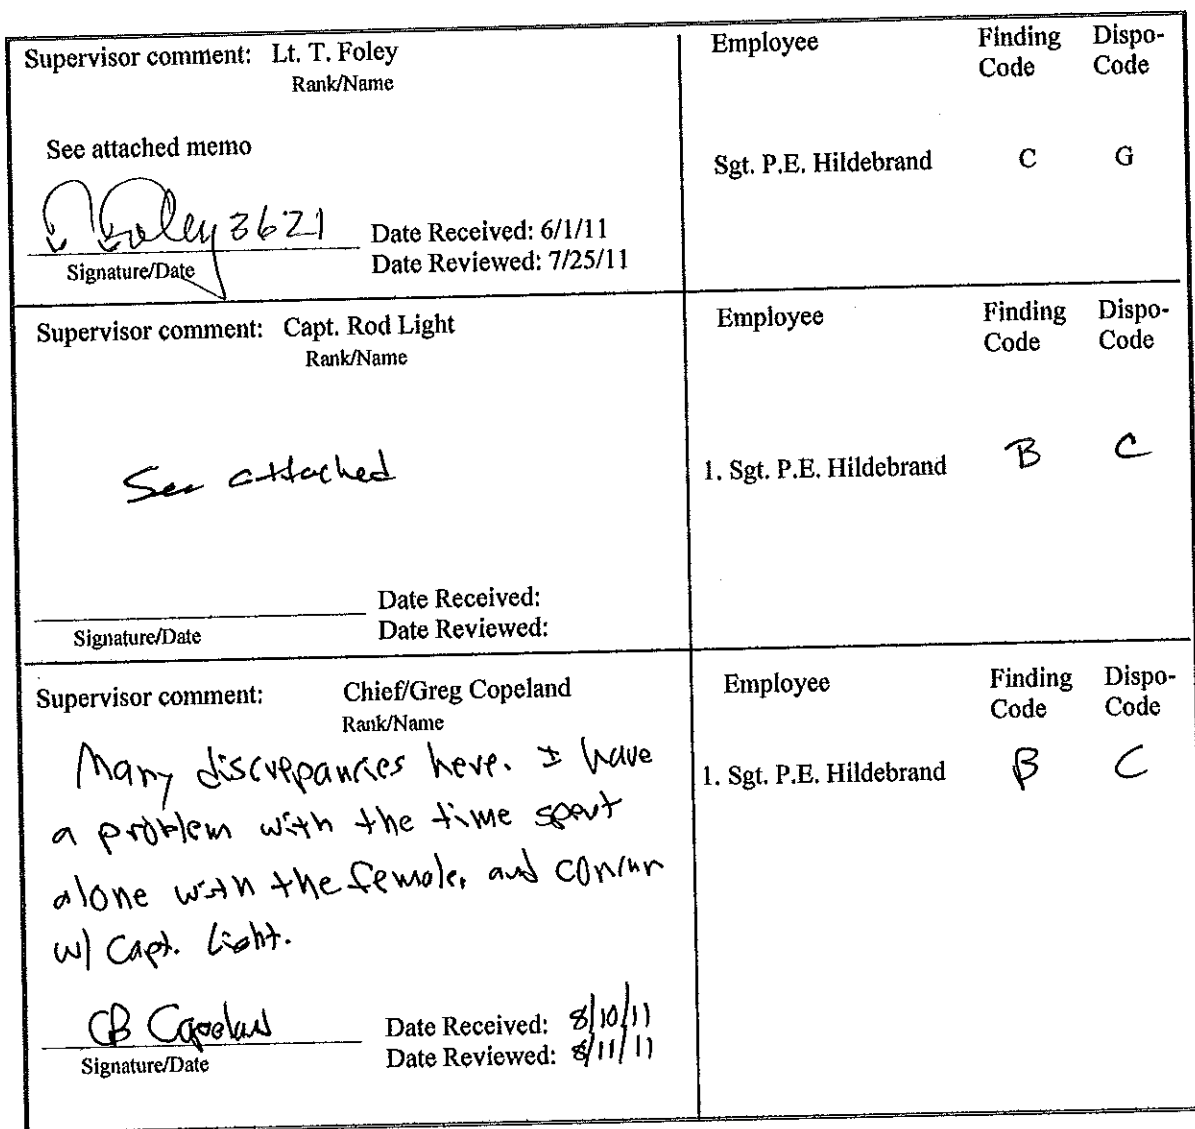 Supervisor comment: Lt. T. Foley
Rank/Name
See attached memo
Foley 3621
Signature/Date
Date Received: 6/1/11
Date Reviewed: 7/25/11
Employee Finding Code Dispo-Code
Sgt. P.E. Hildebrand C G
Supervisor comment: Capt. Rod Light
Rank/Name
See attached
Signature/Date
Date Received:
Date Reviewed:
Employee Finding Code Dispo-Code
1. Sgt. P.E. Hildebrand B C
Supervisor comment: Chief/Greg Copeland
Rank/Name
Many discrepancies here. I have
a problem with the time spent
alone with the female, and concur
w/ Capt. Light.
Signature/Date
Date Received: 8/10/11
Date Reviewed: 8/11/11
Employee Finding Code Dispo-Code
1. Sgt. P.E. Hildebrand B C